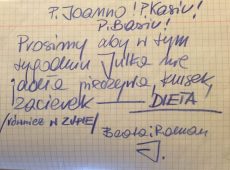 P. Joanno! P. Kasiu!
P. Basiu!
Prosimy aby w tym
tygodniu Julka nie
jadła pieczywa, klusek,
zacierek — DIETA
/również w zupie/
Beata i Roman
J.